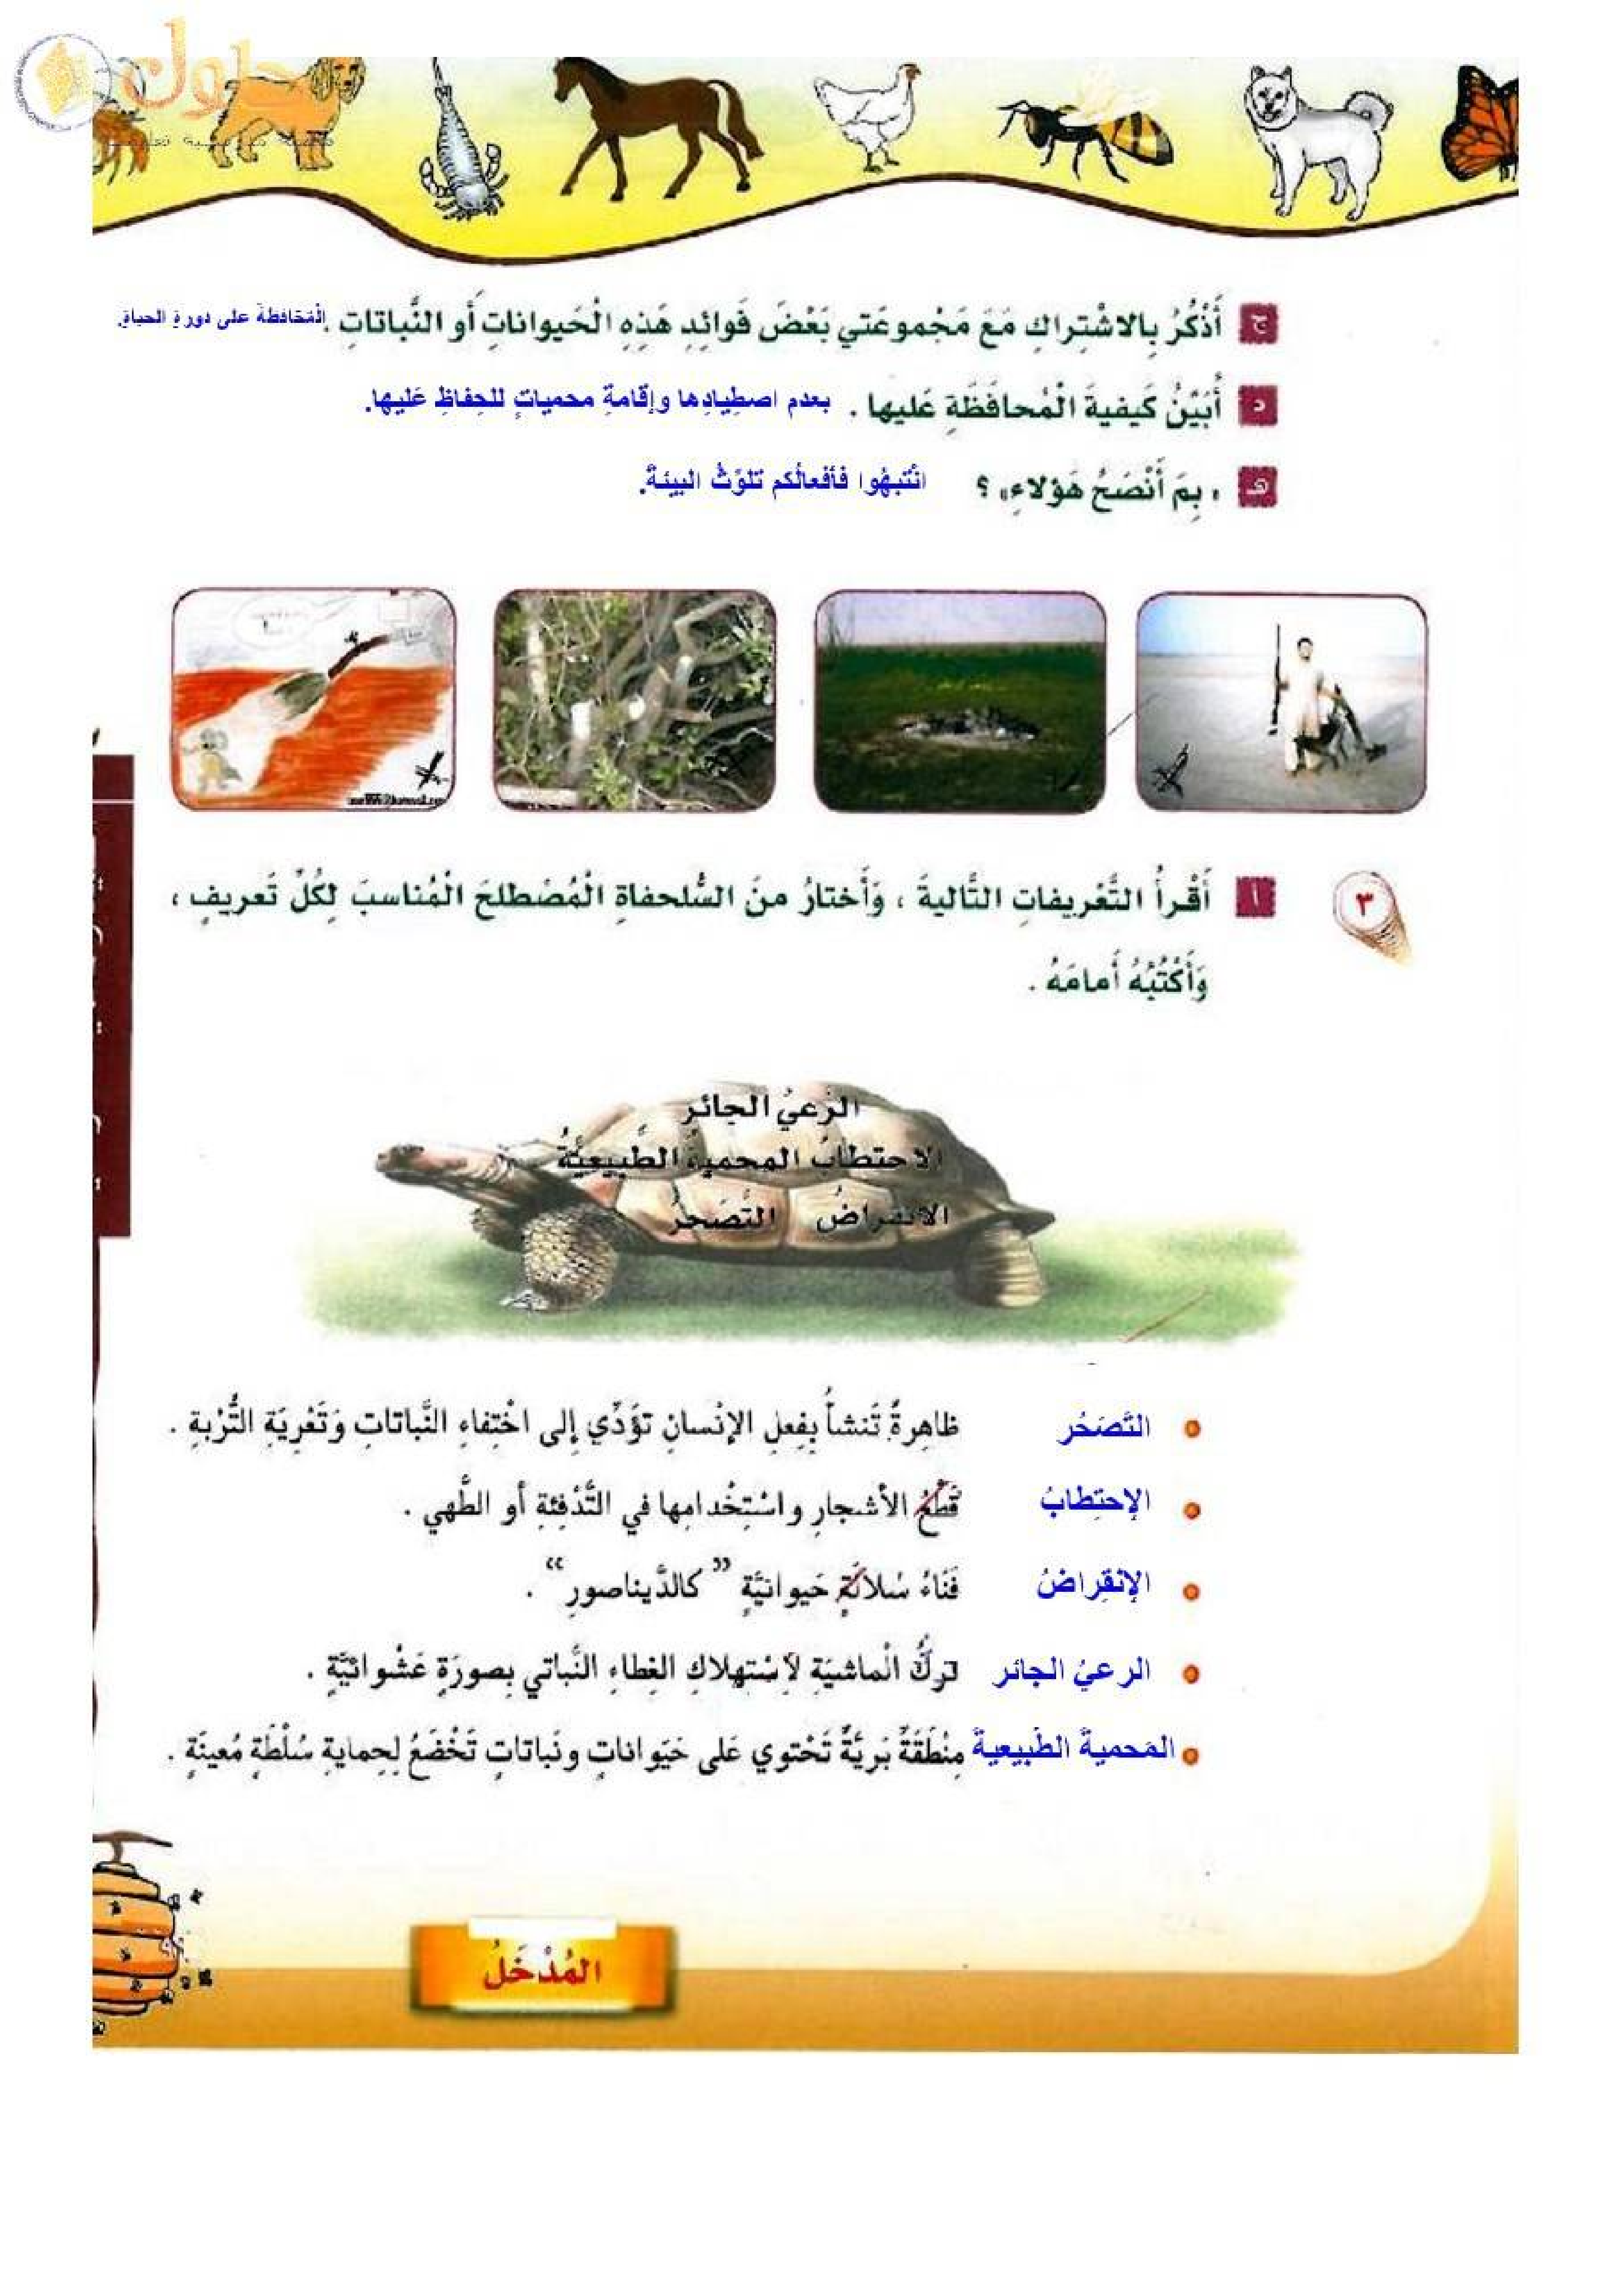 حلول
ج أَذْكُرُ بِالاشْتِراكِ مَعَ مَجْموعَتي بَعْضَ فَوائِدِ هَذِهِ الْحَيواناتِ أَو النَّباتاتِ . الْمُحَافظةُ على دورةِ الحياةِ.
د أُبَيِّنُ كَيفيةَ الْمُحافَظَةِ عَليها . بعدم اصطِيادِها وإقامةِ محمياتٍ للحِفاظِ عَليها.
هـ « بِمَ أَنْصَحُ هَؤلاءِ» ؟ انْتبهُوا فأفعالُكم تلوِّثُ البيئةَ.
٣ أ أَقْرأُ التَّعْريفاتِ التَّاليةَ ، وَأَختارُ منَ السُّلحفاةِ الْمُصْطلحَ الْمُناسبَ لِكُلِّ تَعريفٍ ،
وَأَكْتُبُهُ أَمامَهُ .
الرَّعيُ الجائرُ
الاحتطابُ المحميةُ الطَّبيعيَّةُ
الانقراضُ التَّصَحرُ
التَّصَحُر ظاهِرةٌ تَنشأُ بِفِعلِ الإنْسانِ تؤَدِّي إلى اخْتِفاءِ النَّباتاتِ وَتَعْرِيَةِ التُّرْبةِ .
الإحتِطابُ قَطْعُ الأشجارِ واسْتِخْدامِها في التَّدْفِئةِ أو الطَّهي .
الإنقِراضُ فَنَاءُ سُلالَةٍ حَيوانيَّةٍ ” كالدَّيناصورِ“ .
الرعيُ الجائر تركُ الْماشيَةِ لاسْتِهلاكِ الغِطاءِ النَّباتي بِصورَةٍ عَشْوائيَّةٍ .
المَحميةُ الطَبيعيةُ مِنْطَقَةٌ بَريَّةٌ تَحْتوي عَلى حَيَواناتٍ ونَباتاتٍ تَخْضَعُ لِحِمايةِ سُلْطَةٍ مُعينَةٍ .
المُدْخَلُ